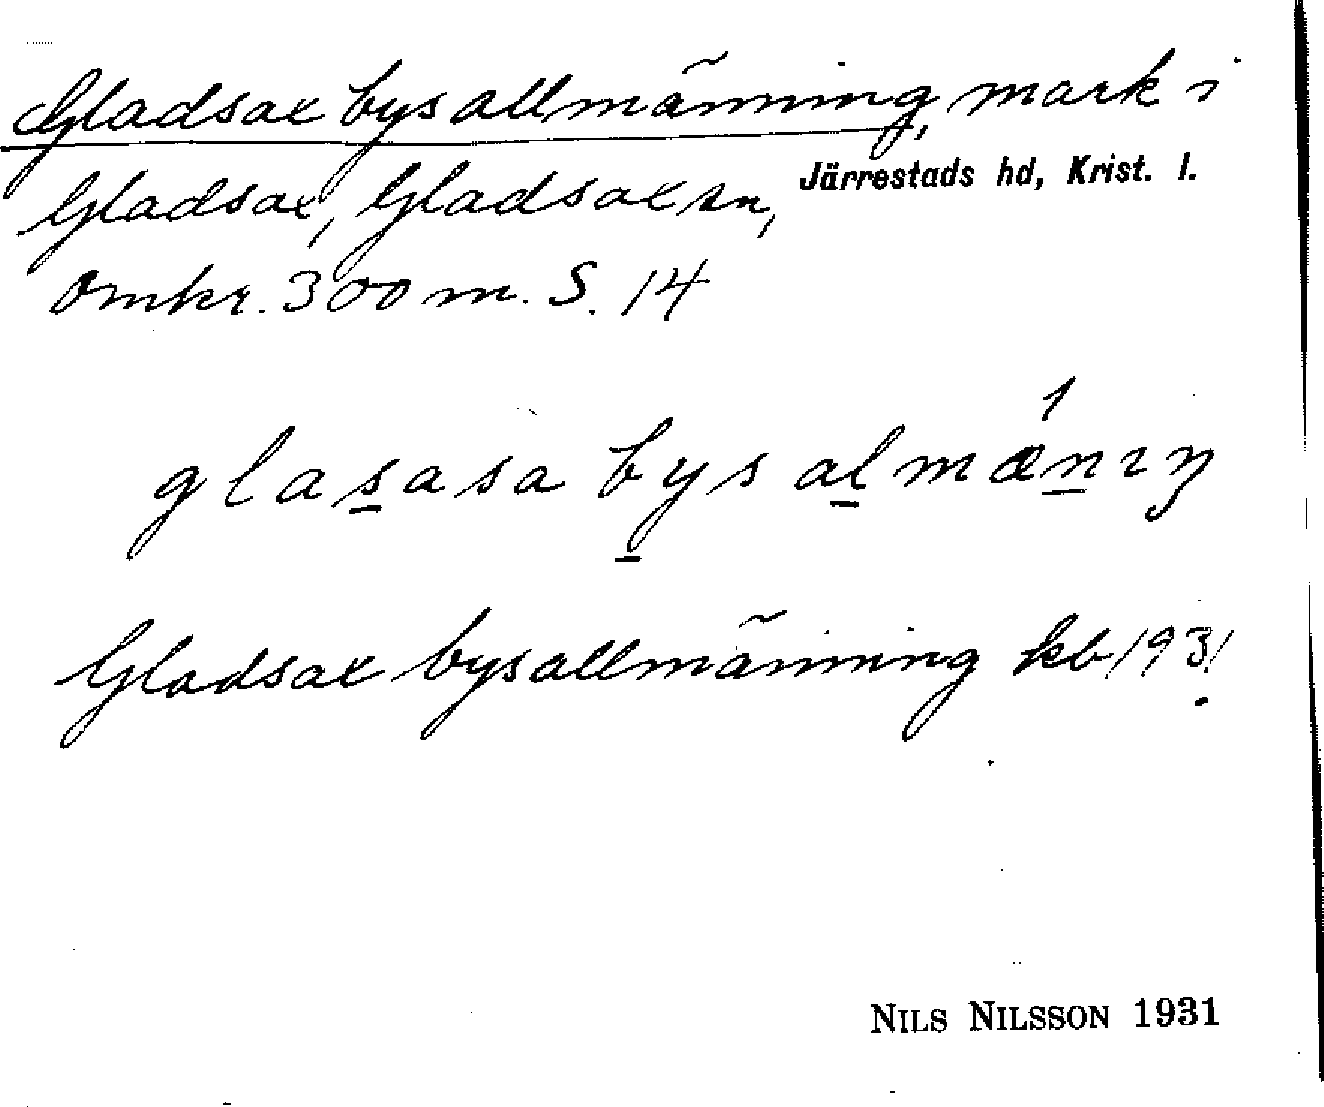 Gladsax bys allmänning, mark i
Gladsax, Gladsax sn, Järrestads hd, Krist. l.
Omkr. 300 m. S. 14
glasasa bys almæ´nıŋ
Gladsax bys allmänning kb 1931
NILS NILSSON 1931